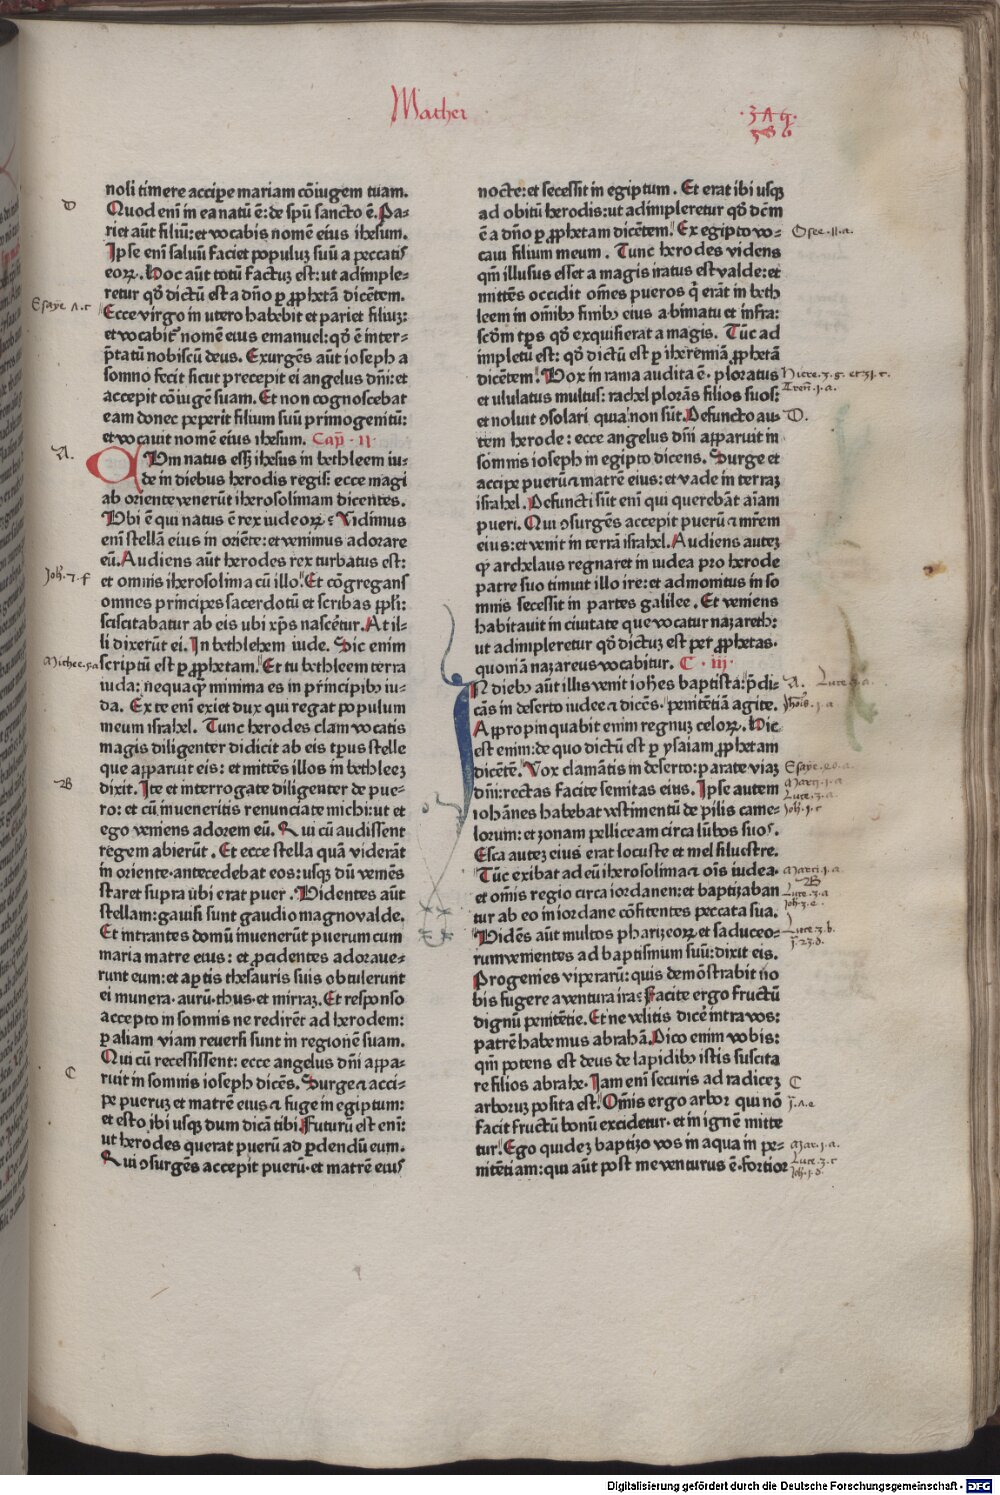 Mather
noli timere accipe mariam cõiugem tuam.
Quod enĩ in ea natũ ẽ: de spũ sancto ẽ. Pa-
riet aũt filiũ: et vocabis nomẽ eius ihesum.
Ipse enĩ saluũ faciet populuȝ suũ a peccatis
eoꝝ. Hoc aũt totũ factuȝ est: ut adimple-
retur qđ dictũ est a dño ꝑ ꝓphetã dicẽtem.
Esaye
Ecce virgo in utero habebit et pariet filiuȝ:
et vocabit᷑ nomẽ eius emanuel: qđ ẽ inter-
p̃tatũ nobiscũ deus. Exurgẽs aũt ioseph a
somno fecit sicut precepit ei angelus dñi: et
accepit cõiugẽ suam. Et non cognoscebat
eam donec peperit filium suũ primogenitũ:
et vocauit nomẽ eius ihesum. Cap̃ · II ·
A.
Cum natus esȝ ihesus in bethleem iu-
de in diebus herodis regis: ecce magi
ab oriente venerũt iherosolimam dicentes.
Ubi ẽ qui natus ẽ rex iudeoꝝ? Vidimus
enĩ stellã eius in oriẽte: et venimus adorare
eũ. Audiens aũt herodes rex turbatus est:
Joh. 7. f
et omnis iherosolima cũ illo. Et cõgregans
omnes principes sacerdotũ et scribas ppl̃i:
sciscitabatur ab eis ubi xp̃s nascẽtur. At il-
li dixerũt ei. In bethlehem iude. Sic enim
Michee. 5. a
scriptũ est ꝑ ꝓphetam. Et tu bethleem terra
iuda: nequaq̃ minima es in pr̃incipibꝰ iu-
da. Ex te enĩ exiet dux qui regat populum
meum israhel. Tunc herodes clam vocatis
magis diligenter didicit ab eis tp̃us stelle
que apparuit eis: et mittẽs illos in bethleeȝ
B
dixit. Ite et interrogate diligenter de pue-
ro: et cũ inueneritis renunciate michi: ut et
ego veniens adorem eũ. Qui cũ audissent
regem abierũt. Et ecce stella quã viderãt
in oriente · antecedebat eos: usqȝ dũ veniẽs
staret supra ubi erat puer. Videntes aũt
stellam: gauisi sunt gaudio magno valde.
Et intrantes domũ inuenerũt puerum cum
maria matre eius: et ꝓcidentes adoraue-
runt eum: et aꝑtis thesauris suis obtulerunt
ei munera · aurũ · thus · et mirraȝ. Et responso
accepto in somnis ne redirẽt ad herodem:
ꝑ aliam viam reuersi sunt in regionẽ suam.
Qui cũ recessissent: ecce angelus dñi appa-
C
ruit in somnis ioseph dicẽs. Surge ⁊ acci-
pe pueruȝ et matrẽ eius ⁊ fuge in egiptum:
et esto ibi usqȝ dum dicã tibi. Futurũ est enĩ:
ut herodes querat puerũ ad ꝑdendũ eum.
Qui ɔsurgẽs accepit puerũ · et matrẽ eius
nocte: et secessit in egiptum. Et erat ibi usqȝ
ad obitũ herodis: ut adimpleretur qđ dc̃m
ẽ a dño ꝑ ꝓphetam dicẽtem. Ex egipto vo- Osee · 11 · a.
caui filium meum. Tunc herodes videns
qm̃ illusus esset a magis iratus est valde: et
mittẽs occidit om̃es pueros q̃ erãt in beth
leem in om̃ibꝰ finibꝰ eius a bimatu et infra:
scd̃m tp̃s qđ exquisierat a magis. Tũc ad
impletũ est: qđ dictũ est ꝑ iheremiã ꝓphetã
dicẽtem. Vox in rama audita ẽ · ploratus
et ululatus multus: rachel plorãs filios suos: Tren̄. 1. a.
et noluit ɔsolari quia non sũt. Defuncto au- D.
tem herode: ecce angelus dñi apparuit in
somnis ioseph in egipto dicens. Surge et
accipe puerũ ⁊ matrẽ eius: et vade in terraȝ
israhel. Defuncti sũt enĩ qui querebãt aĩam
pueri. Qui ɔsurgẽs accepit puerũ ⁊ mr̃em
eius: et venit in terrã israhel. Audiens auteȝ
qꝫ archelaus regnaret in iudea pro herode
patre suo timuit illo ire: et admonitus in so
mnis secessit in partes galilee. Et veniens
habitauit in ciuitate que vocatur nazareth:
ut adimpleretur qđ dictuȝ est per ꝓphetas ·
quoniã nazareus vocabitur. C · III ·
IN diebꝰ aũt illis venit ioh̃es baptista: p̃di- A.
cãs in deserto iudee ⁊ dicẽs · penitẽtiã agite.
Appropinquabit enim regnuȝ celoꝝ. Hic
est enim: de quo dictũ est ꝑ ysaiam ꝓphetam
dicẽtẽ. Vox clamãtis in deserto: parate viaȝ
dñi: rectas facite semitas eius. Ipse autem
iohãnes habebat vestimentũ de pilis came-
lorum: et zonam pelliceam circa lũbos suos.
Esca auteȝ eius erat locuste et mel siluestre.
Tũc exibat ad eũ iherosolima ⁊ oĩs iudea · Marci. 1. a.
et om̃is regio circa iordanen: et baptizaban
tur ab eo in iordane cõfitentes peccata sua.
Vidẽs aũt multos pharizeoꝝ et saduceo- Luce. 3. b.
rum venientes ad baptismum suũ: dixit eis.
Progenies viperarũ: quis demõstrabit ṽo
bis fugere a ventura ira? Facite ergo fructũ
dignũ penitẽtie. Et ne velitis dicẽ intra vos:
patrẽ habemus abrahã. Dico enim vobis:
qm̃ potens est deus de lapidibꝰ istis suscita
re filios abrahe. Iam enĩ securis ad radiceȝ C
arboruȝ posita est. Om̃is ergo arbor qui nõ
facit fructũ bonũ excidetur · et in ignẽ mitte
tur. Ego quideȝ baptizo vos in aqua in pe- Mar. 1. a.
nitẽtiam: qui aũt post me venturus ẽ · fortior Luce. 3. c
Digitalisierung gefördert durch die Deutsche Forschungsgemeinschaft - DFG